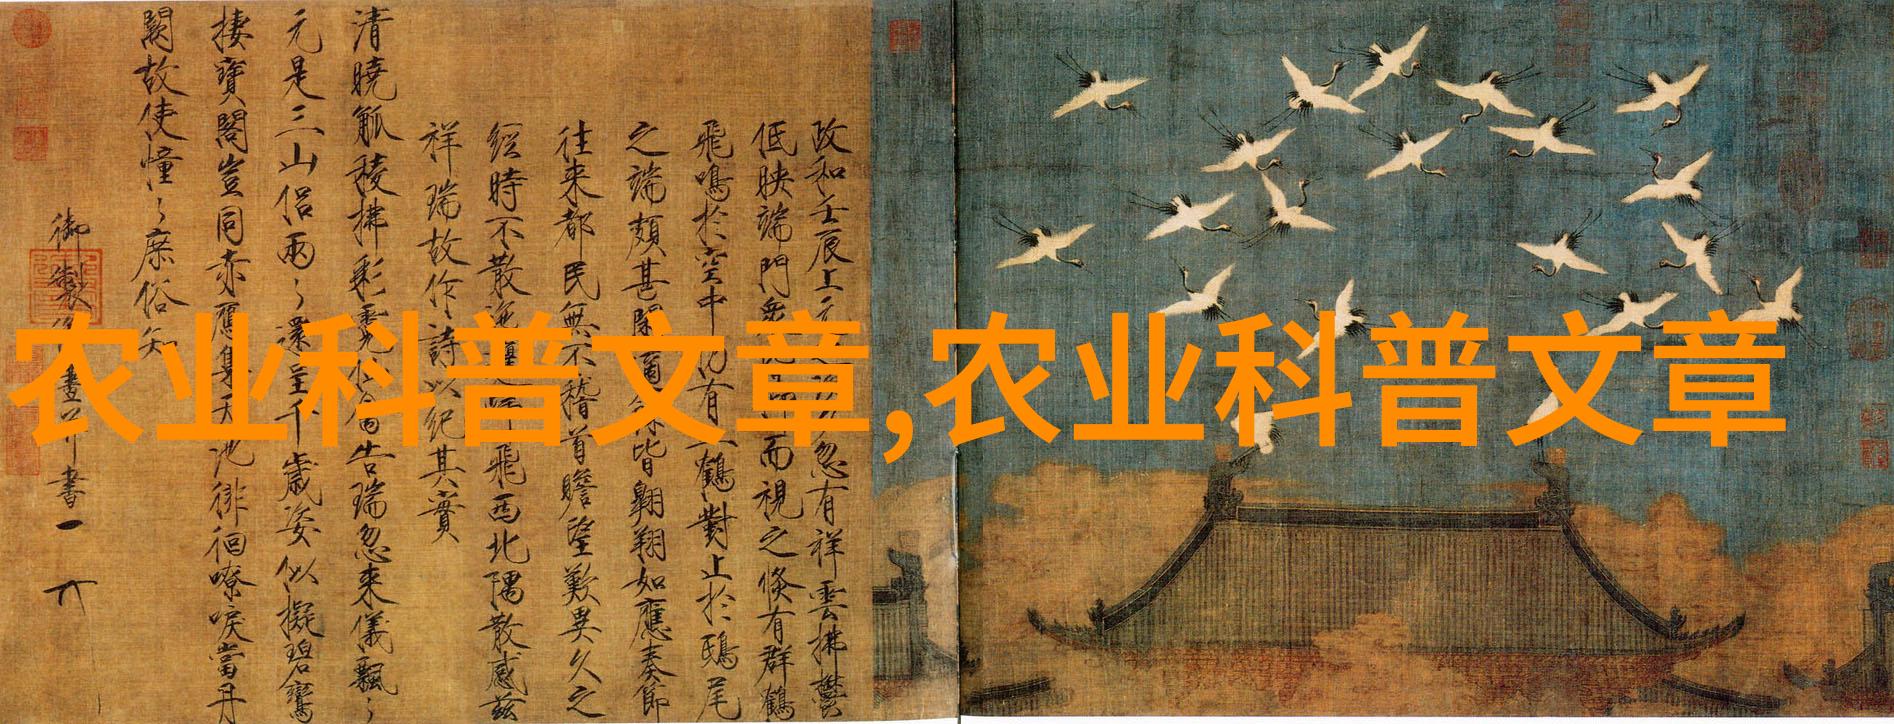 农业科普文章,农业科普文章
政和壬辰上元忽有祥雲拂鬱
低映端門眾而視之倏有群鶴
飛鳴於空中仍有二鶴對止於鴟尾
之端頗甚閑皆翱翔如應奏節
往來都民無不稽首瞻望歎異久之
經時不散飛西北隅散感茲
祥瑞故作詩以紀其實
清曉觚稜拂彩霓告瑞忽來儀飄々
元是三山侶兩々還呈千歲姿似擬碧鸞
棲寶閣豈同赤鴈集天池徘徊嘹唳當丹
闕故使憧々庶俗知
御製畫并書